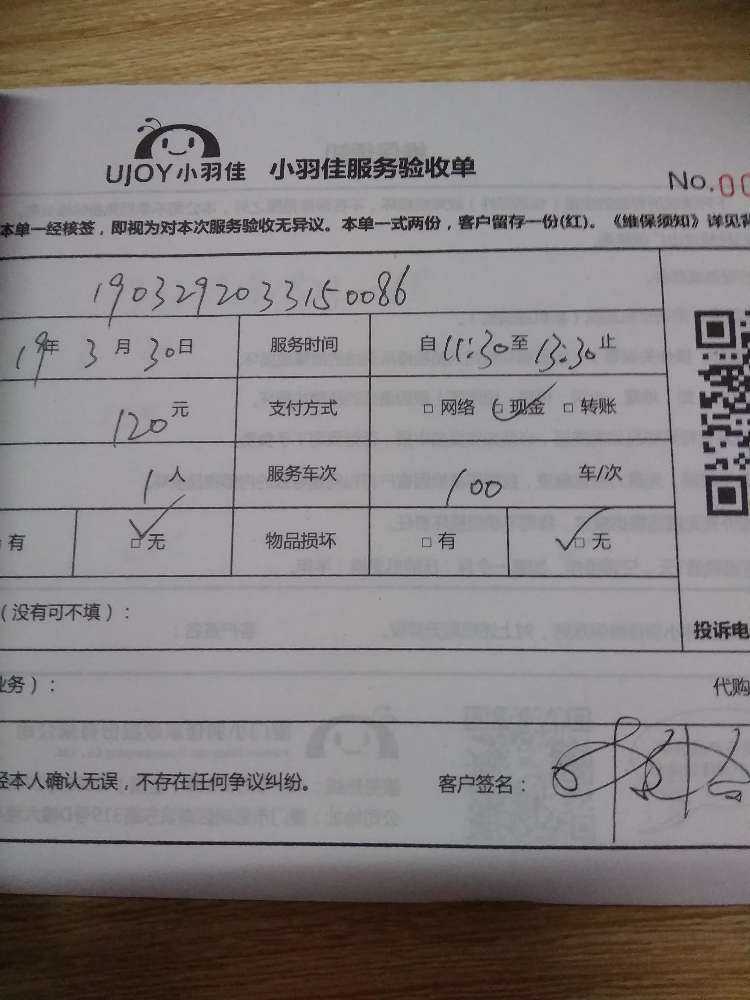 UJOY小羽佳 小羽佳服务验收单
No.00
本单一经核签，即视为对本次服务验收无异议。本单一式两份，客户留存一份(红)。《维保须知》详见背
1903292033150086
19年 3月 30日 服务时间 自11:30至13:30止
120元 支付方式 □网络 □现金 □转账
1人 服务车次 100 车/次
有 □无 物品损坏 □有 □无
（没有可不填）：
投诉电
业务）： 代购
经本人确认无误，不存在任何争议纠纷。 客户签名：